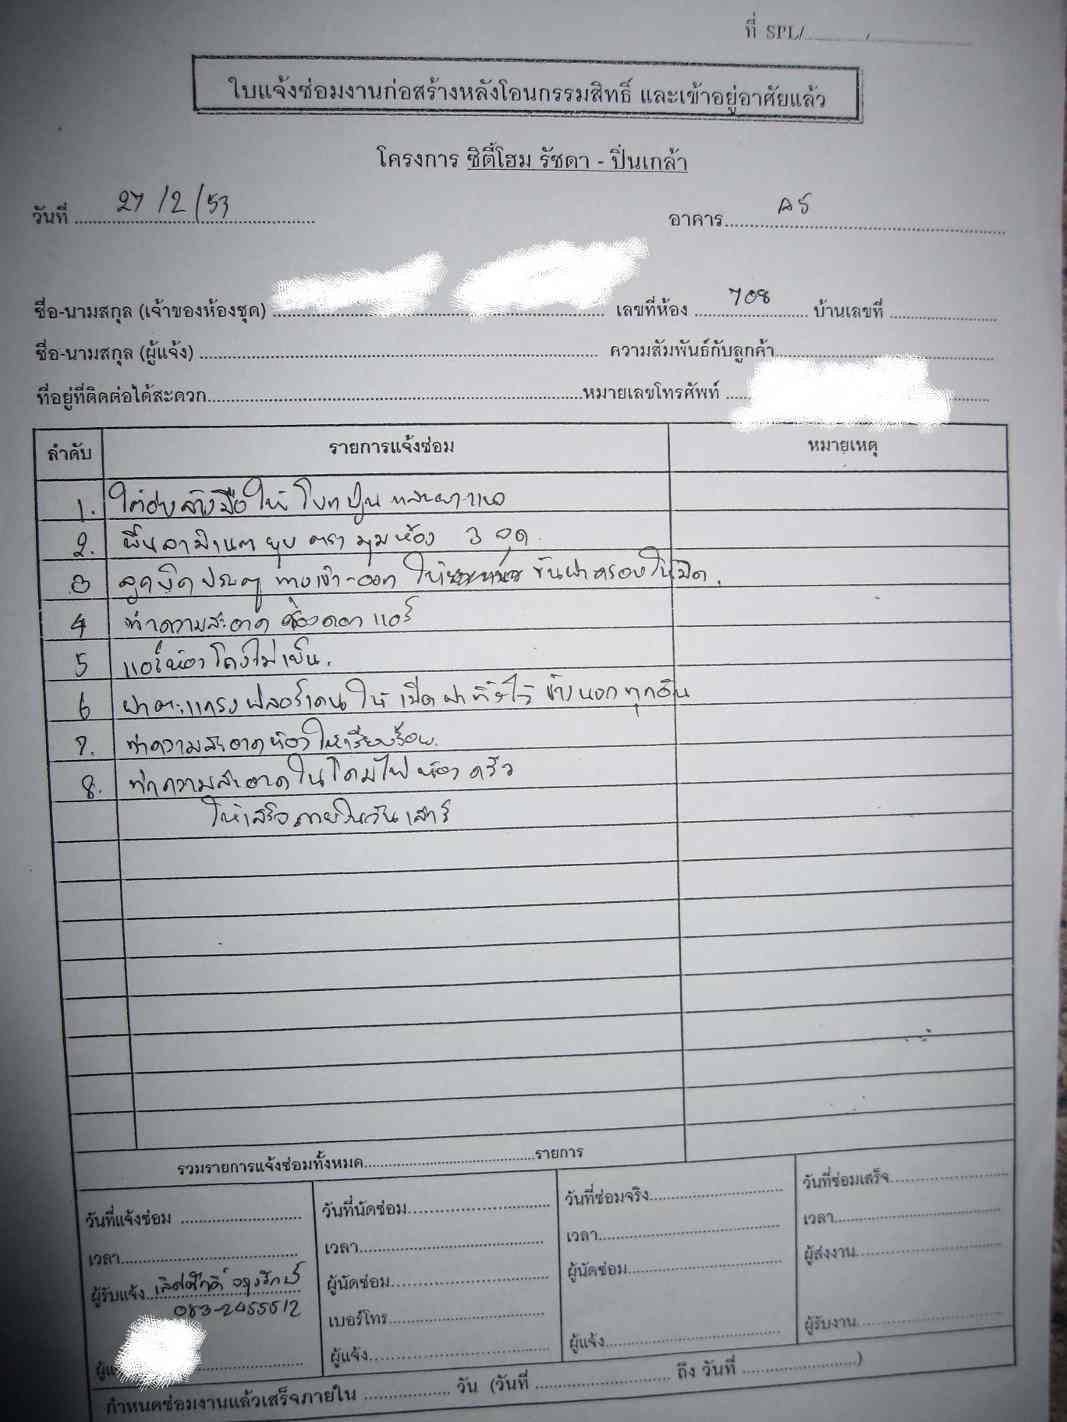 ที่ SPL/............/....................
ใบแจ้งซ่อมงานก่อสร้างหลังโอนกรรมสิทธิ์ และเข้าอยู่อาศัยแล้ว
โครงการ ซิตี้โฮม รัชดา - ปิ่นเกล้า
วันที่ 27/2/53 อาคาร A5
ชื่อ-นามสกุล (เจ้าของห้องชุด) เลขที่ห้อง 708 บ้านเลขที่
ชื่อ-นามสกุล (ผู้แจ้ง) ความสัมพันธ์กับลูกค้า
ที่อยู่ที่ติดต่อได้สะดวก หมายเลขโทรศัพท์
ลำดับ รายการแจ้งซ่อม หมายเหตุ
1. ใต้อ่างล้างมือให้โบกปูน
2. พื้นลามิเนต ยุบ ตรง มุมห้อง 3 จุด
3 ลูกบิดประตู ทางเข้า-ออก ให้ ขันฝาครอบให้มิด.
4 ทำความสะอาด แอร์
5 แอร์ห้องโถงไม่เย็น.
6 ฝาตะแกรงฟลอร์เดรน ให้ เปิดฝาทิ้งไว้ ข้างนอกทุกอัน
7. ทำความสะอาดห้องให้เรียบร้อย.
8. ทำความสะอาดในโคมไฟห้องครัว
ให้เสร็จภายในวันเสาร์
รวมรายการแจ้งซ่อมทั้งหมด รายการ
วันที่แจ้งซ่อม วันที่นัดซ่อม วันที่ซ่อมจริง วันที่ซ่อมเสร็จ
เวลา เวลา เวลา เวลา
ผู้รับแจ้ง เลิศศักดิ์ ผู้นัดซ่อม ผู้นัดซ่อม ผู้ส่งงาน
083-2455512 เบอร์โทร
ผู้แจ้ง ผู้แจ้ง ผู้รับงาน
กำหนดซ่อมงานแล้วเสร็จภายใน วัน (วันที่ ถึง วันที่ )